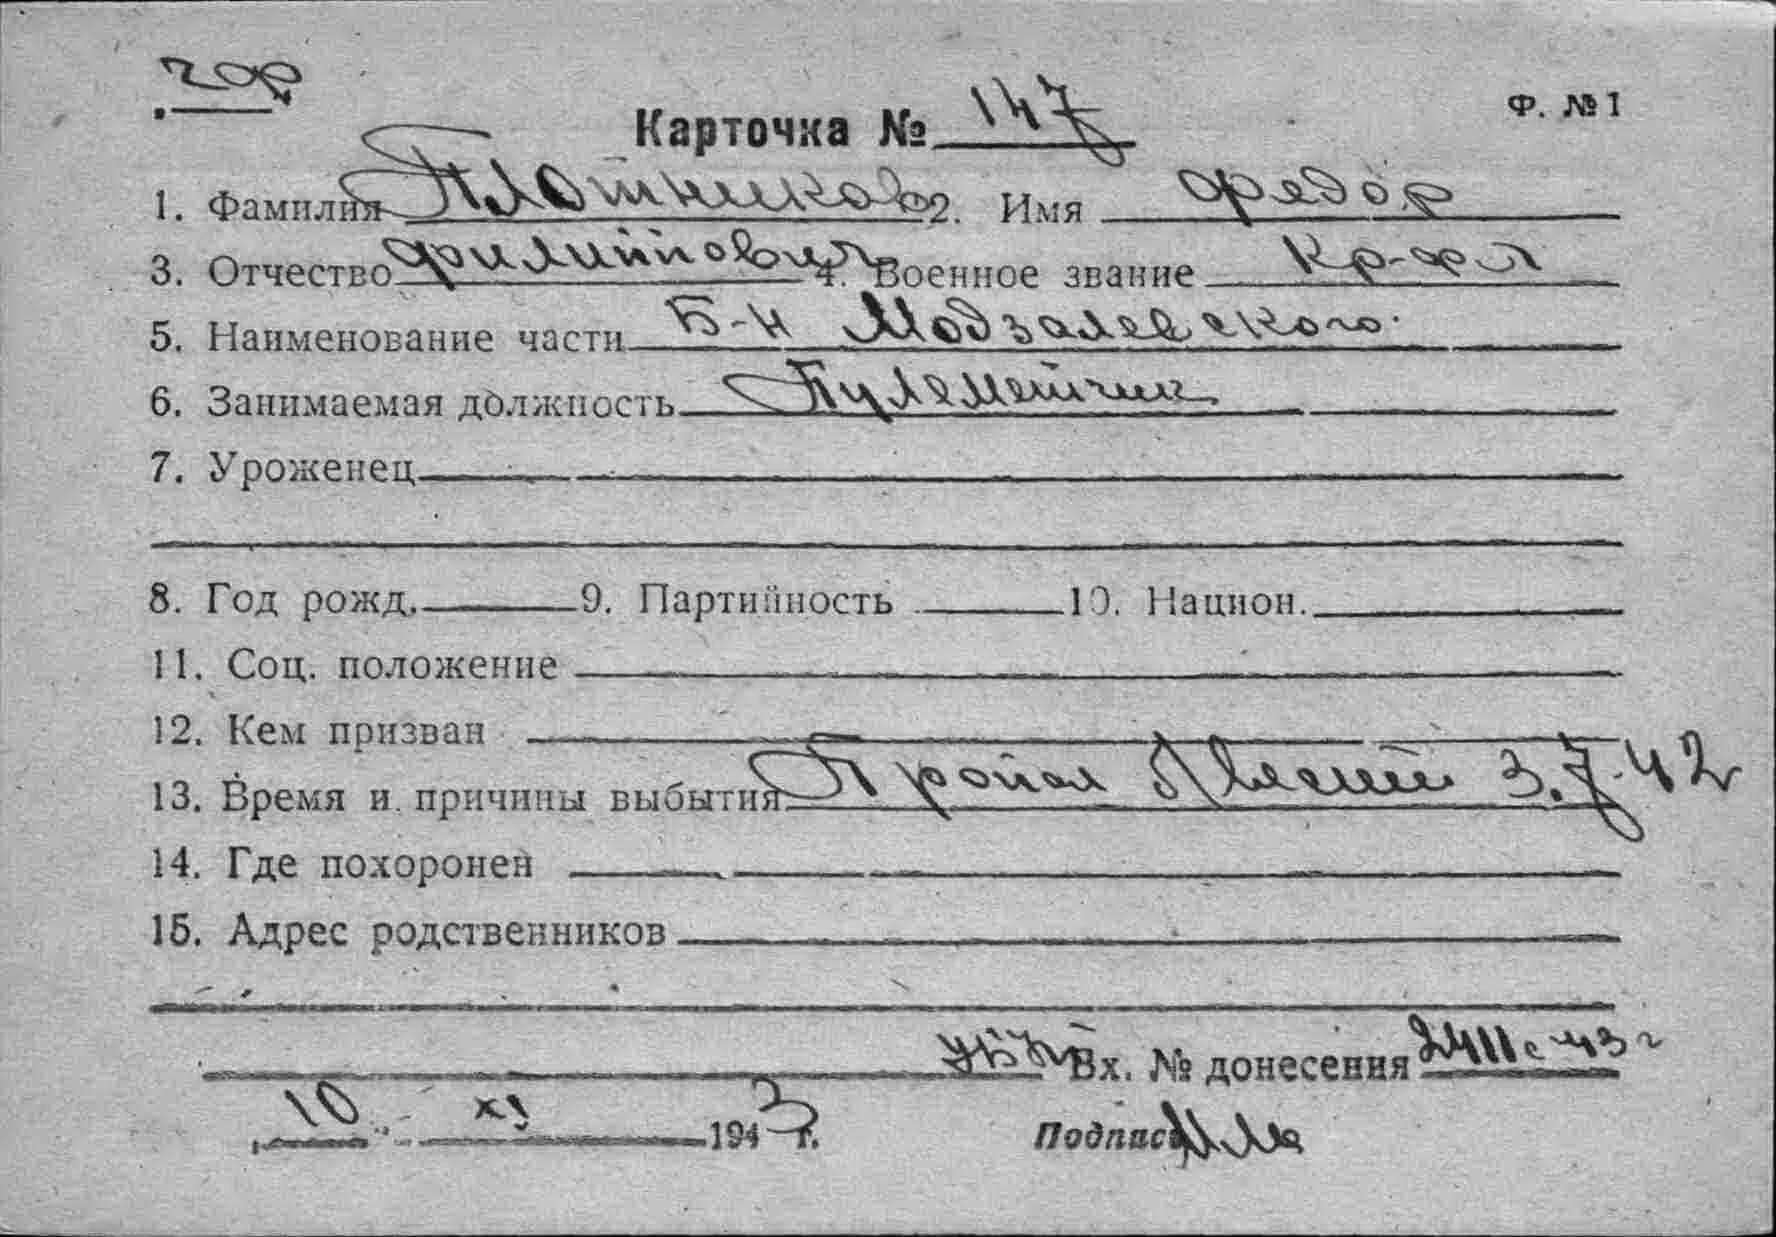 Карточка № 147 Ф. № 1
1. Фамилия Плотников 2. Имя Федор
3. Отчество Филиппович 4. Военное звание Кр-ф-ц
5. Наименование части Б-н Модзалевского
6. Занимаемая должность Пулеметчик
7. Уроженец
8. Год рожд. 9. Партийность 10. Национ.
11. Соц. положение
12. Кем призван
13. Время и причины выбытия Пропал 3.7.42
14. Где похоронен
15. Адрес родственников
Вх. № донесения
10 XI 1943 г. Подпись